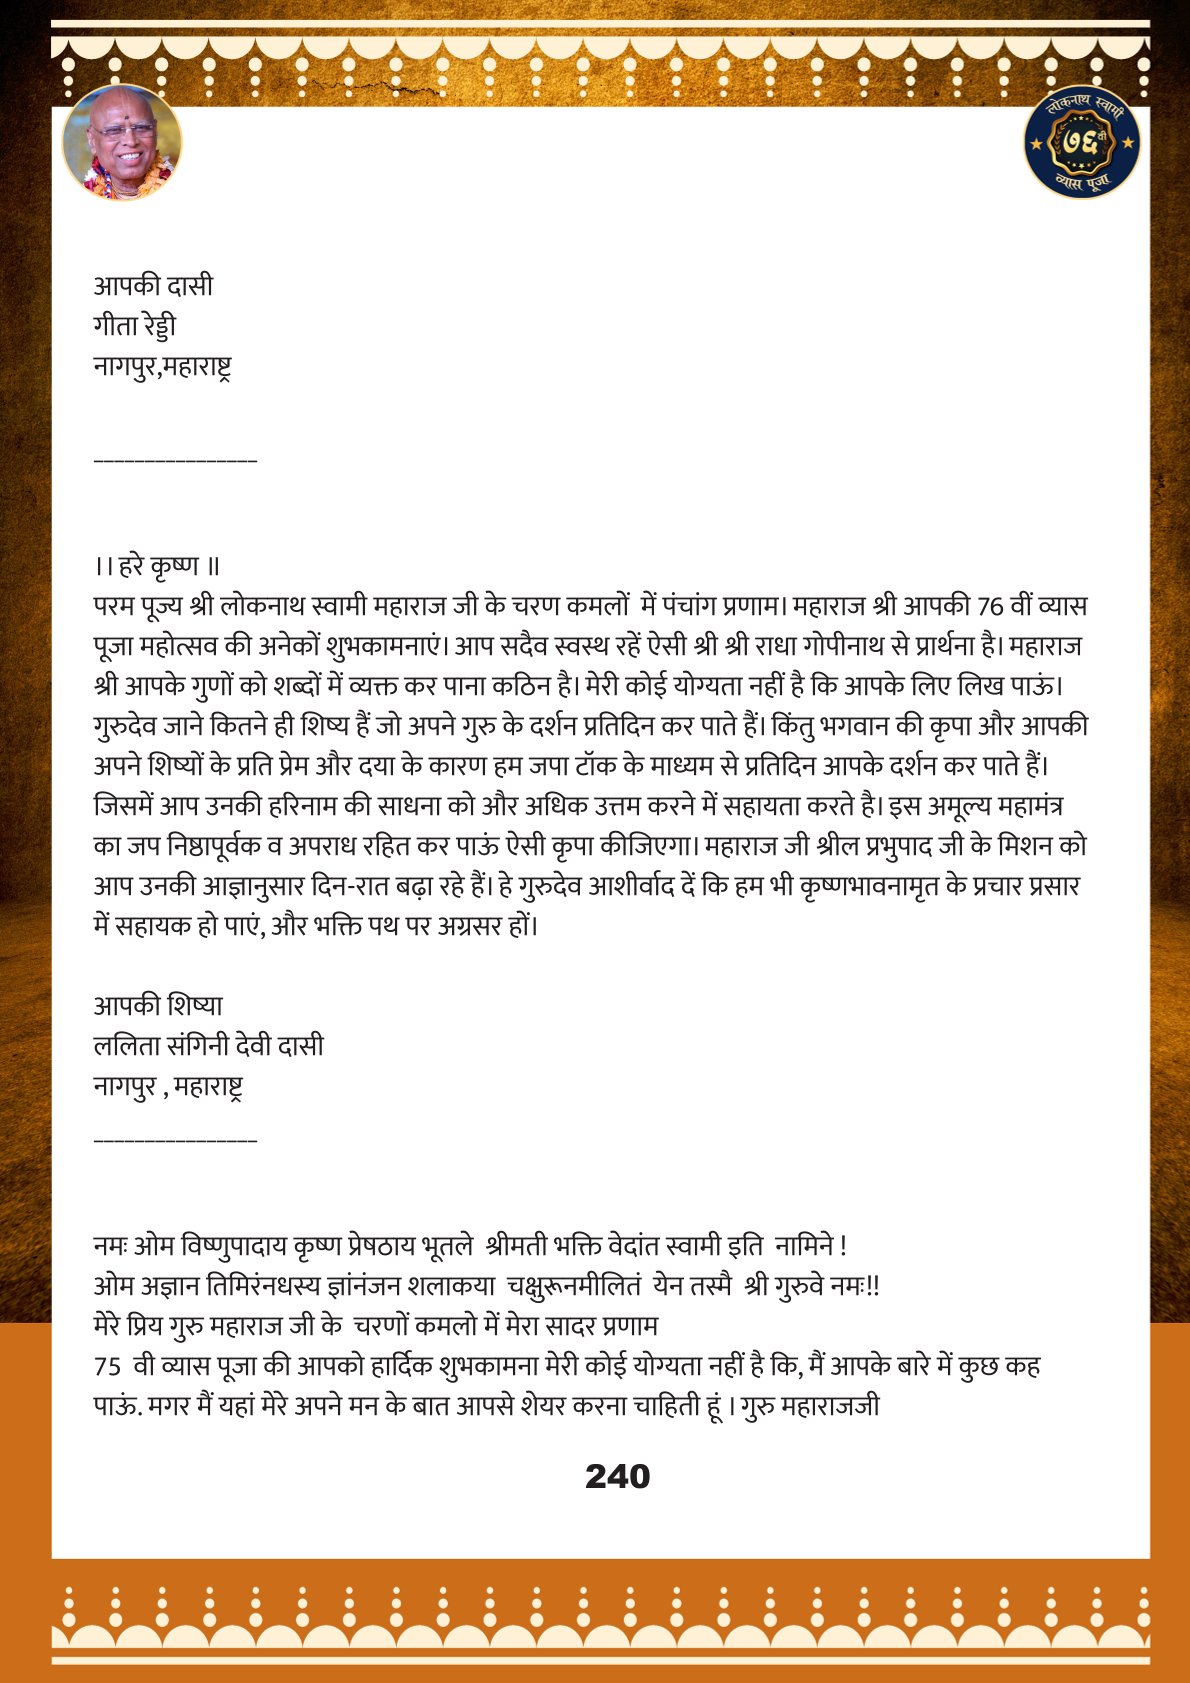 लोकनाथ स्वामी
७६ वी
व्यास पूजा
आपकी दासी
गीता रेड्डी
नागपुर,महाराष्ट्र
________________
।। हरे कृष्ण ॥
परम पूज्य श्री लोकनाथ स्वामी महाराज जी के चरण कमलों में पंचांग प्रणाम। महाराज श्री आपकी 76 वीं व्यास
पूजा महोत्सव की अनेकों शुभकामनाएं। आप सदैव स्वस्थ रहें ऐसी श्री श्री राधा गोपीनाथ से प्रार्थना है। महाराज
श्री आपके गुणों को शब्दों में व्यक्त कर पाना कठिन है। मेरी कोई योग्यता नहीं है कि आपके लिए लिख पाऊं।
गुरुदेव जाने कितने ही शिष्य हैं जो अपने गुरु के दर्शन प्रतिदिन कर पाते हैं। किंतु भगवान की कृपा और आपकी
अपने शिष्यों के प्रति प्रेम और दया के कारण हम जपा टॉक के माध्यम से प्रतिदिन आपके दर्शन कर पाते हैं।
जिसमें आप उनकी हरिनाम की साधना को और अधिक उत्तम करने में सहायता करते है। इस अमूल्य महामंत्र
का जप निष्ठापूर्वक व अपराध रहित कर पाऊं ऐसी कृपा कीजिएगा। महाराज जी श्रील प्रभुपाद जी के मिशन को
आप उनकी आज्ञानुसार दिन-रात बढ़ा रहे हैं। हे गुरुदेव आशीर्वाद दें कि हम भी कृष्णभावनामृत के प्रचार प्रसार
में सहायक हो पाएं, और भक्ति पथ पर अग्रसर हों।
आपकी शिष्या
ललिता संगिनी देवी दासी
नागपुर , महाराष्ट्र
________________
नमः ओम विष्णुपादाय कृष्ण प्रेषठाय भूतले श्रीमती भक्ति वेदांत स्वामी इति नामिने !
ओम अज्ञान तिमिरंनधस्य ज्ञांनंजन शलाकया चक्षुरूनमीलितं येन तस्मै श्री गुरुवे नमः!!
मेरे प्रिय गुरु महाराज जी के चरणों कमलो में मेरा सादर प्रणाम
75 वी व्यास पूजा की आपको हार्दिक शुभकामना मेरी कोई योग्यता नहीं है कि, मैं आपके बारे में कुछ कह
पाऊं. मगर मैं यहां मेरे अपने मन के बात आपसे शेयर करना चाहिती हूं । गुरु महाराजजी
240